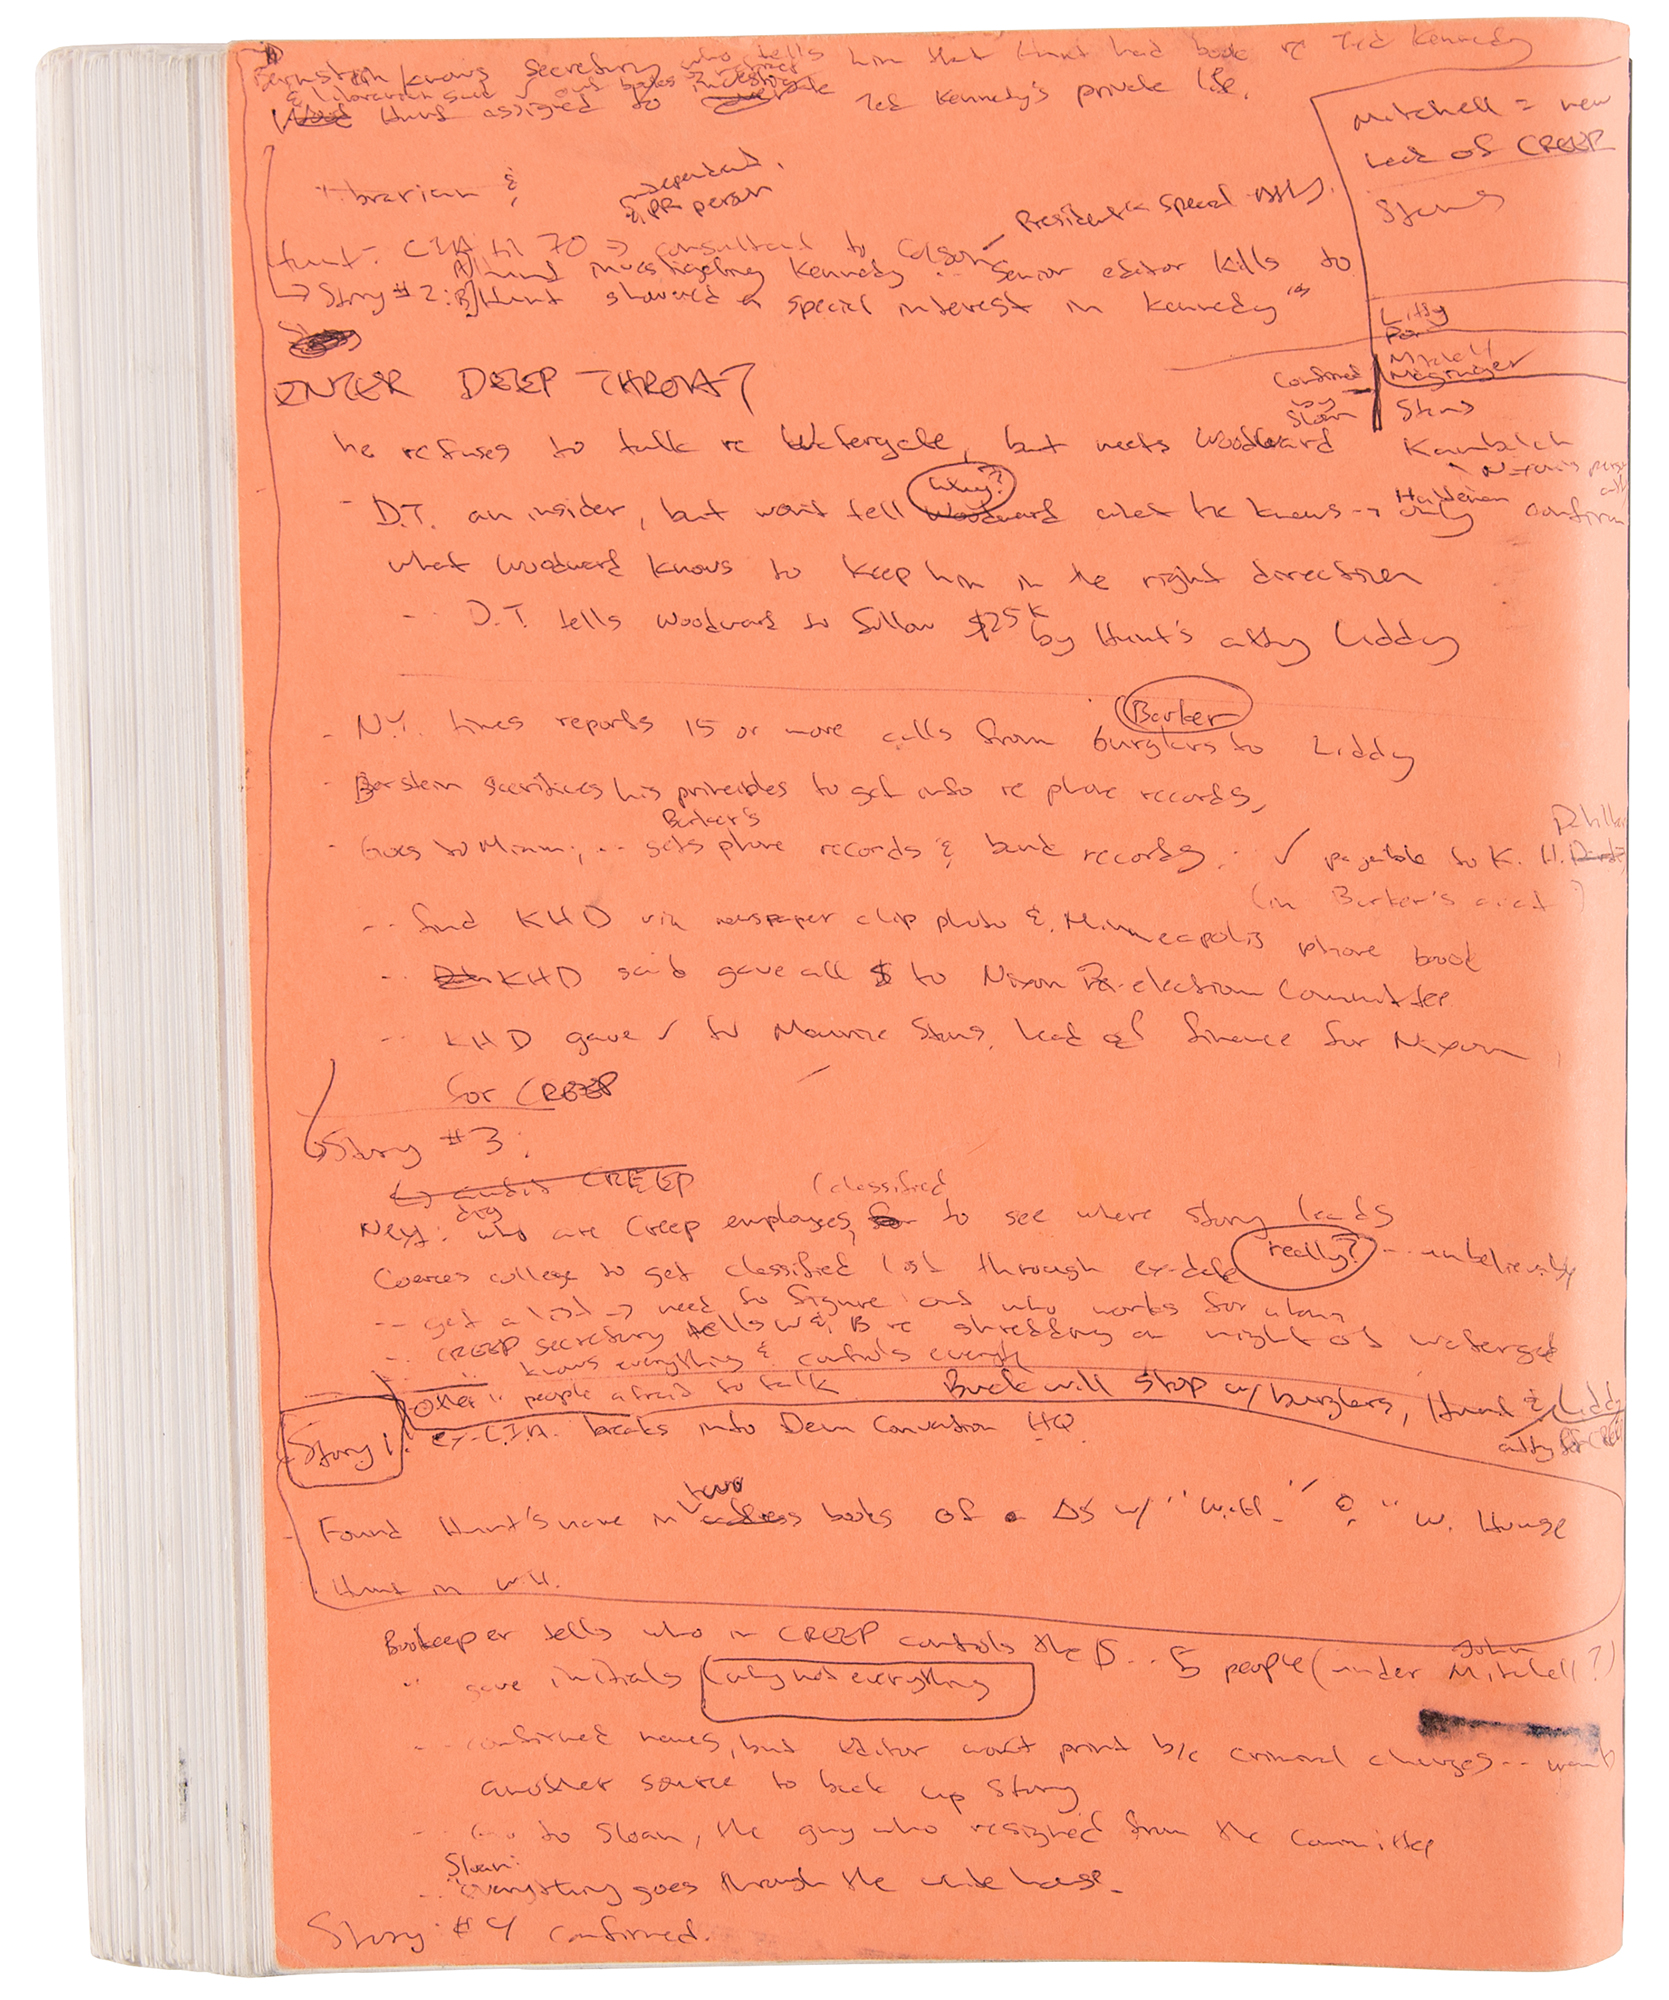 Bernstein knows Secretary who tells him that Hunt had book re Ted Kennedy
& librarian said ✓ out books
Hunt assigned to investigate Ted Kennedy's private life.
Mitchell = new
head of CREEP
Stans
librarian &
independent
& PR person
President's special atty.
Hunt: CIA til 70 → consultant to Colson
A) Hunt investigating Kennedy -- Senior editor kills to
↳ Story #2: B) Hunt showed a special interest in Kennedy"
Liddy
Porter
Mitchell
Magruder
Confirmed
by
Sloan
Stans
ENTER DEEP THROAT
he refuses to talk re Watergate, but meets Woodward
Kambalch
Nixon's pers
atty
why?
Haldeman
- D.T. an insider, but won't tell Woodward what he knows → only confirm
what Woodward knows to keep him in the right direction
-- D.T. tells Woodward to follow $25K by Hunt's atty Liddy
Barker
- N.Y. times reports 15 or more calls from burglers to Liddy
- Berstein sacrifices his principles to get info re phone records,
Barker's
Dahlberg
- Goes to Miami, -- gets phone records & bank records -- ✓ payable to K. H.
(in Barker's acct)
-- find KHD via newspaper clip photo & Minneapolis phone book
-- KHD said gave all $ to Nixon Re-election Committee
-- KHD gave ✓ to Maurice Stans, head of finance for Nixon
for CREEP
↳ Story #3:
↳ audit CREEP
(classified
dig
Next: who are Creep employees, to see where story leads
Coerces college to get classified list through ex-date really? -- unbelievable
-- get a list → need to figure out who works for whom
-- CREEP secretary tells W & B re shredding on night of Watergate
-- " knows everything & controls everyth
- Other " people afraid to talk
Buck will stop w/ burglers, Hunt & Liddy
atty for CREEP
Story 1: ex-C.I.A. breaks into Dem Convention HQ
two
- Found Hunt's name in address books of Δs w/ "W.H." & "W. House
Hunt in W.H.
Bookeeper tells who in CREEP controls the $ -- 5 people (under John Mitchell?)
" gave initials (why not everything
-- confirmed names, but editor won't print b/c criminal charges -- want
another source to back up story
-- Go to Sloan, the guy who resigned from the committee
Sloan:
-- "everything goes through the white house.
Story #4 confirmed.